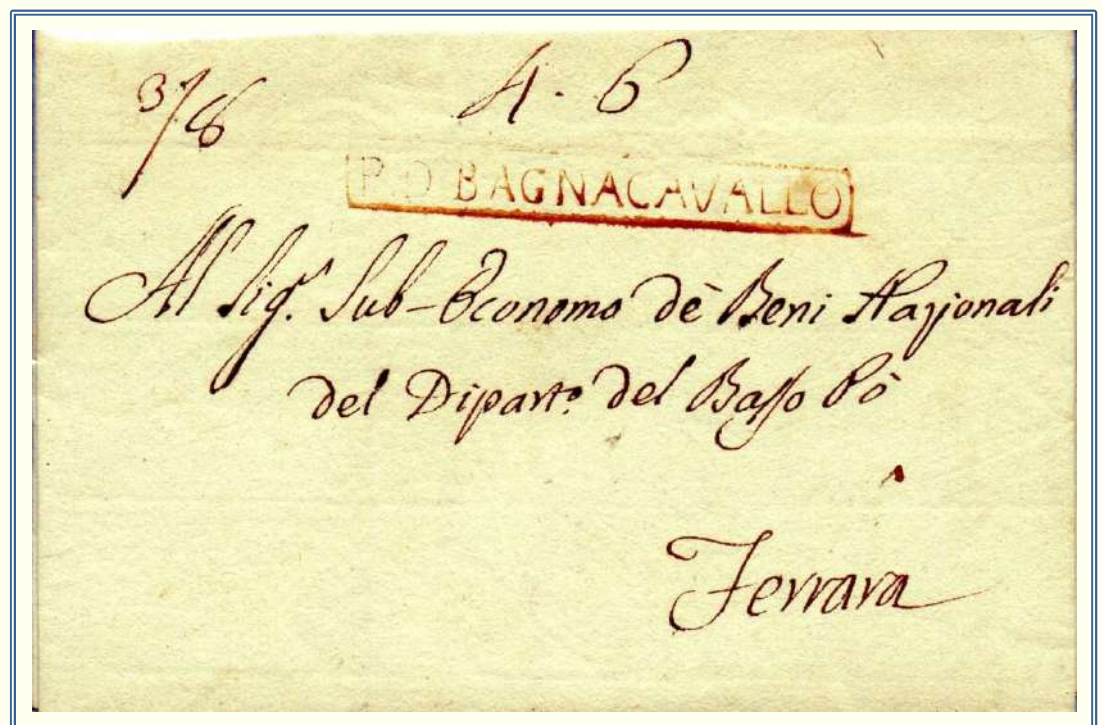 3/8
4 - 6
P.D BAGNACAVALLO
Al Sigʳ. Sub-Economo dè Beni Nazionali
del Dipartº. del Basso Pò
Ferrara